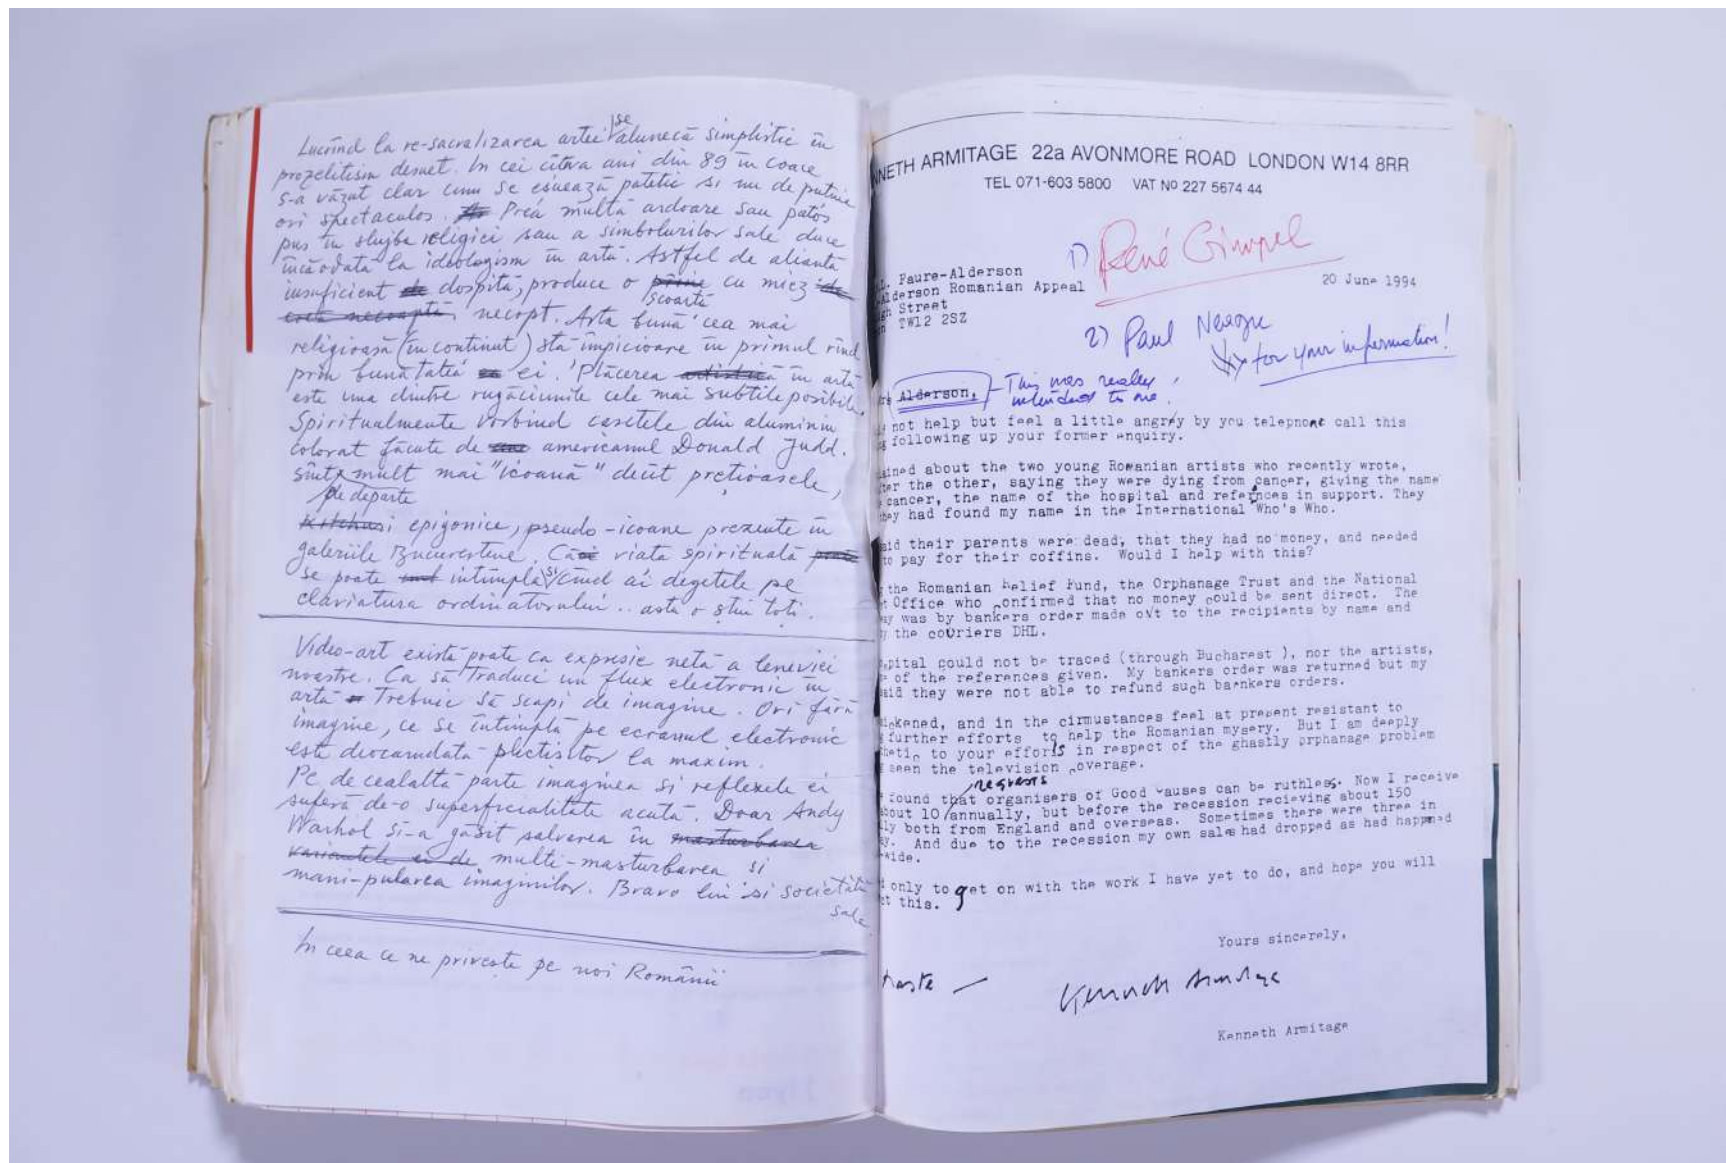 Lucrînd la re-sacralizarea artei se alunecă simplistic în
prozelitism desuet. In cei cîtva ani din 89 în coace
s-a văzut clar cum se eșuează patetic si nu de putine
ori spectaculos. Prea multă ardoare sau patos
pus în slujba religiei sau a simbolurilor sale duce
încăodată la ideologism în artă. Astfel de aliantă
insuficient dospită, produce o scoartă cu miez
necopt. Arta bună cea mai
religioasă (în continut) stă împicioare în primul rînd
prin bunătatea ei. Plăcerea în artă
este una dintre rugăciunile cele mai subtile posibile.
Spiritualmente vorbind casetele din aluminum
colorat făcute de americanul Donald Judd.
sînt mult mai "icoană" decît prețioasele,
pe departe
epigonice, pseudo-icoane prezente în
galeriile Bucurestene. Că viata spirituală
se poate intîmpla si cînd ai degetele pe
claviatura ordinatorului.. asta o știu toți.
Video-art există poate ca expresie netă a lenevici
noastre. Ca să traduci un flux electronic în
artă trebuie să scapi de imagine. Ori fără
imagine, ce se întîmplă pe ecranul electronic
este deocamdată plictisitor la maxim.
Pe de cealaltă parte imaginea si reflexele ei
suferă de-o superficialitate acută. Doar Andy
Warhol si-a găsit salvarea în masturbarea
variantele ei de multi-masturbarea si
mani-pularea imaginilor. Bravo lui si societătii
sale.
In ceea ce ne privește pe noi Românii
NNETH ARMITAGE 22a AVONMORE ROAD LONDON W14 8RR
TEL 071-603 5800 VAT Nº 227 5674 44
1) René Gimpel
Faure-Alderson
Alderson Romanian Appeal
20 June 1994
Street
TW12 2SZ
2) Paul Neagu
for your information!
Alderson, This was really
intended to me!
not help but feel a little angry by you telephone call this
following up your former enquiry.
ained about the two young Romanian artists who recently wrote,
ter the other, saying they were dying from cancer, giving the name
cancer, the name of the hospital and refernces in support. They
hey had found my name in the International Who's Who.
aid their parents were dead, that they had no money, and needed
to pay for their coffins. Would I help with this?
the Romanian Relief Fund, the Orphanage Trust and the National
Office who confirmed that no money could be sent direct. The
ay was by bankers order made out to the recipients by name and
the couriers DHL.
pital could not be traced (through Bucharest ), nor the artists,
of the references given. My bankers order was returned but my
aid they were not able to refund such bankers orders.
ickened, and in the cirmustances feel at present resistant to
further efforts to help the Romanian mysery. But I am deeply
hetic to your efforts in respect of the ghastly orphanage problem
seen the television coverage.
requests
found that organisers of Good Causes can be ruthless. Now I receive
about 10 annually, but before the recession recieving about 150
ly both from England and overseas. Sometimes there were three in
ay. And due to the recession my own sales had dropped as had happned
-wide.
only to get on with the work I have yet to do, and hope you will
ct this.
Yours sincerely,
haste — Kenneth Armitage
Kenneth Armitage